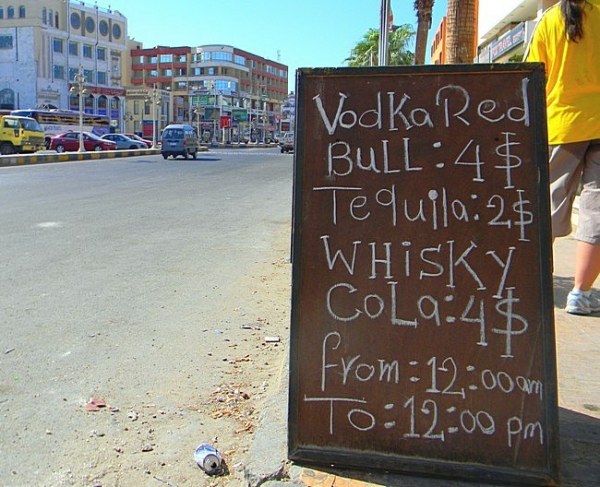 VodKa Red
BuLL: 4$
Tequila: 2$
WHisKy
CoLa: 4$
from: 12:00 am
To: 12:00 pm